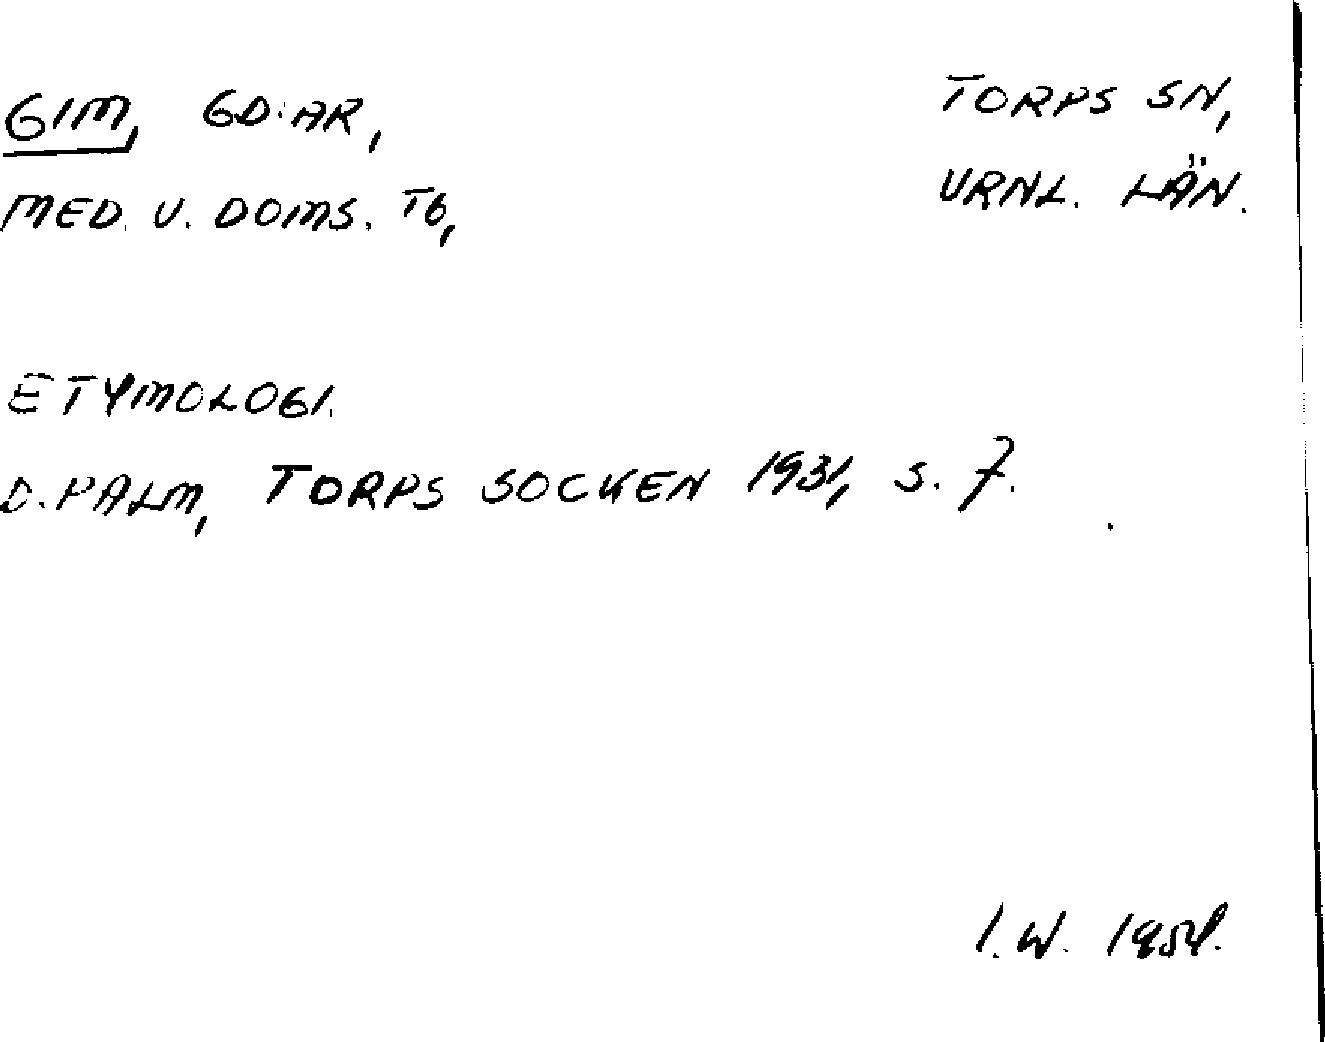 GIM, GD:AR,
TORPS SN,
MED. V. DOMS. TG,
VRNL. LÄN.
ETYMOLOGI.
D. PALM, TORPS SOCKEN 1931, S. 7.
I. W. 1954.